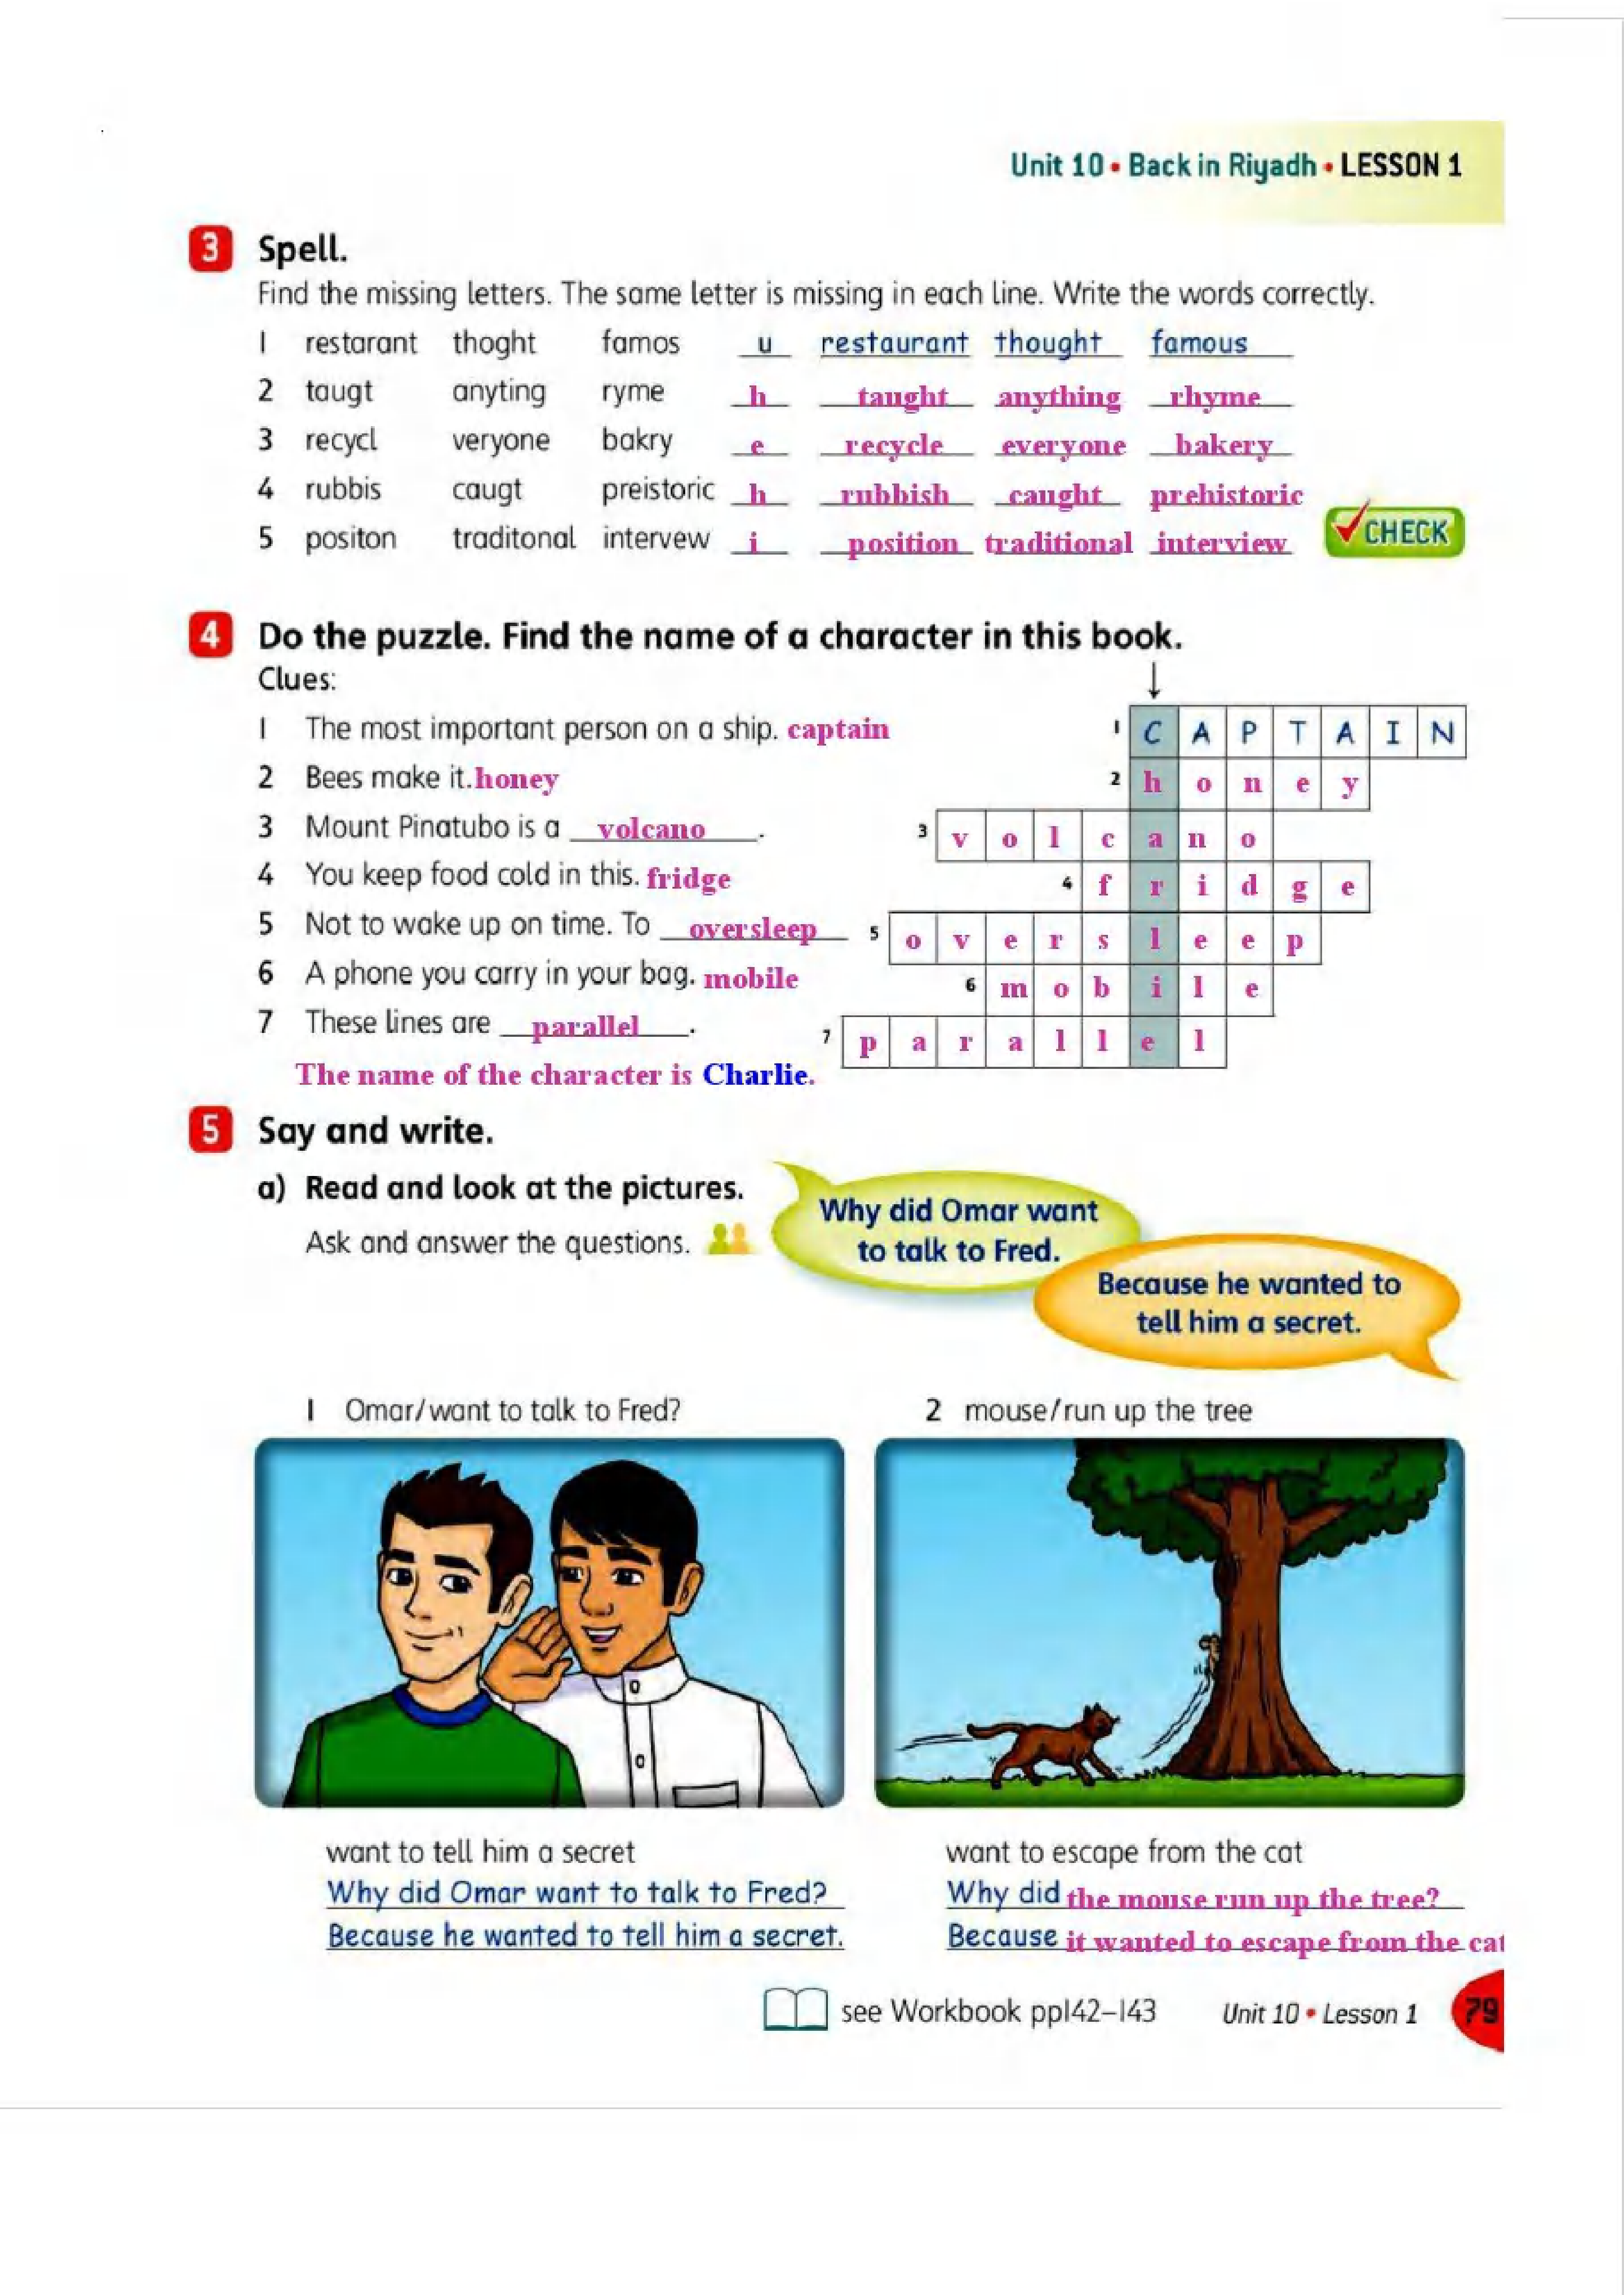 Unit 10 • Back in Riyadh • LESSON 1
3 Spell.
Find the missing letters. The same letter is missing in each line. Write the words correctly.
1 restarant thoght famos u restaurant thought famous
2 taugt anyting ryme h taught anything rhyme
3 recycl veryone bakry e recycle everyone bakery
4 rubbis caugt preistoric h rubbish caught prehistoric
5 positon traditonal intervew i position traditional interview
CHECK
4 Do the puzzle. Find the name of a character in this book.
Clues:
1 The most important person on a ship. captain
2 Bees make it. honey
3 Mount Pinatubo is a volcano.
4 You keep food cold in this. fridge
5 Not to wake up on time. To oversleep
6 A phone you carry in your bag. mobile
7 These lines are parallel.
The name of the character is Charlie.
1 C A P T A I N
2 h o n e y
3 v o l c a n o
4 f r i d g e
5 o v e r s l e e p
6 m o b i l e
7 p a r a l l e l
5 Say and write.
a) Read and look at the pictures.
Ask and answer the questions.
Why did Omar want
to talk to Fred.
Because he wanted to
tell him a secret.
1 Omar/want to talk to Fred?
2 mouse/run up the tree
want to tell him a secret
Why did Omar want to talk to Fred?
Because he wanted to tell him a secret.
want to escape from the cat
Why did the mouse run up the tree?
Because it wanted to escape from the cat
see Workbook pp142–143
Unit 10 • Lesson 1
79